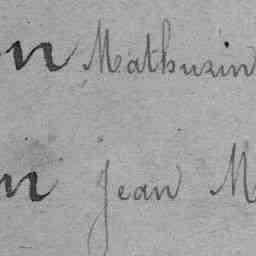 n Mathurin
n Jean M